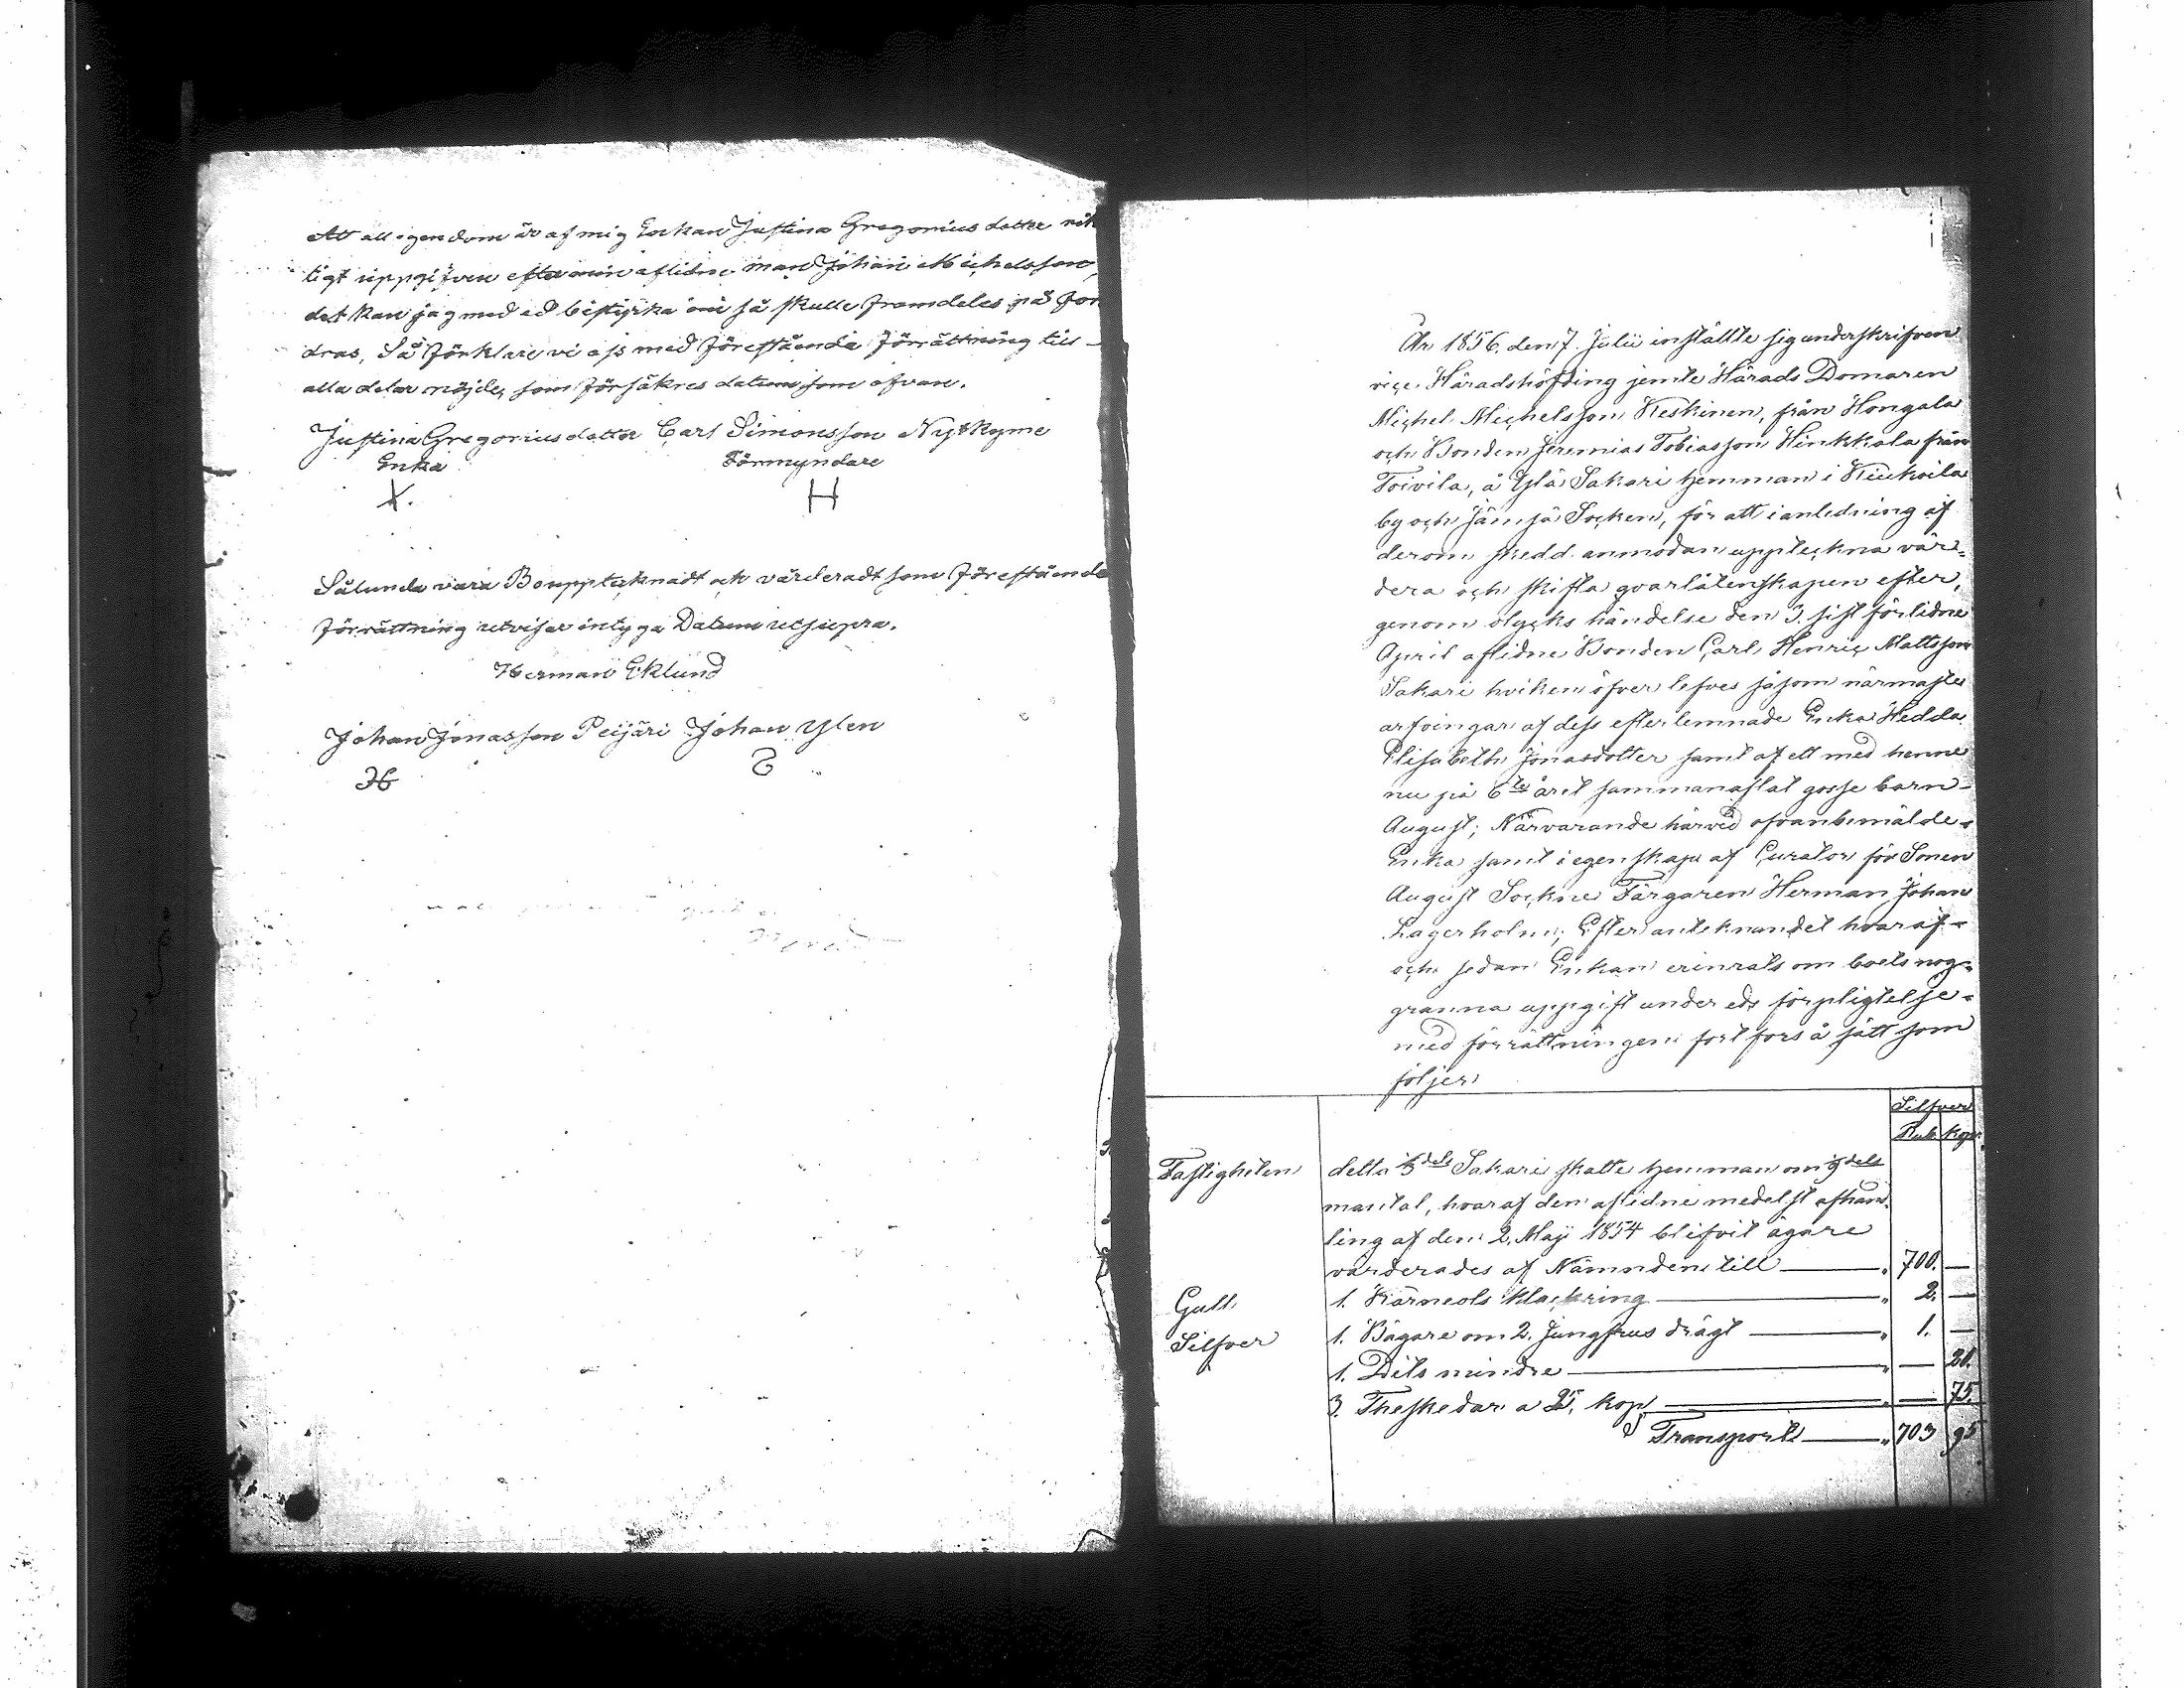 Att all egendom är af mig Enkan Justina Gregorius dotter rik
tigt uppgifven efter min aflidne man Johan Michelsson,
det kan jag med ed bestyrka om så skulle framdeles på for
dras, Så förklare vi oss med förestående förrättning till
alla delar nöjde, som försäkres datum som ofvan.
Justina Gregoriusdotter Carl Simonsson Nyrkyme
Enka Förmyndare
X. H
Sålunda vara Bouppteknadt och värderadt som förestående
förrättning utvisar intyga Datum utsupra.
Herman Eklund
Johan Jonasson Peijäri Johan Ylen
År 1856, den 7. Julii inställte sig underskrifven
vice Häradshöfding jemte Härads Domaren
Michel Michelsson Keskinen, från Hongala
och Bonden Jeremias Tobiasson Hinkkala från
Toivila, å Ylä Sakari hemman i Kuikoila
by och Jämsä Socken, för att i anledning af
derom skedd anmodan uppteckna vär=
dera och skifta qvarlåtenskapen efter,
genom olycks händelse den 3. sist förlidne
April aflidne Bonden Carl Henric Mattsson
Sakari hviken öfver lefves såsom närmaste
arfvingar af dess efterlemnade Enka Hedda
Elisabeth Jonasdotter samt af ett med henne
nu på 6te året sammanaflat gosse barn
August; Närvarande härvid ofvanbemälde
Enka samt i egenskap af Curator för Sonen
August Sockne Färgaren Herman Johan
Lagerholm; Efter anteknandet hvaraf
och sedan Enkan erinrats om boets nog=
granna uppgift under eds förpligtelse
med förrättningen fort fors å sätt som
följer:
Silfver
Rub. Kop.
Fastigheten detta Sakari skatte hemman om
mantal, hvaraf den aflidne medelst afhand
ling af den 2. Maji 1854 blifvit ägare
värderades af Nämnden till — " 700. —
Gull. 1. Karneols klackring — " 2. —
Silfver 1. Bägare om 2. Jungfrus drägt — " 1. —
1. Dito mindre — " — 20.
3. Theskedar a 25. kop — " — 75.
Transport — " 703 95